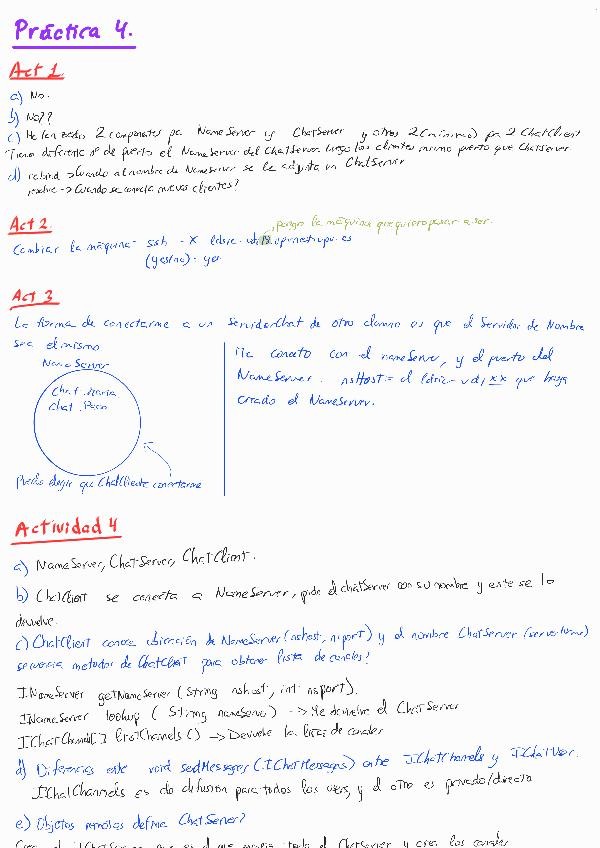 Práctica 4.
Act 1
a) No.
b) No??
c) He lanzado 2 componentes pa NameServer y ChatServer y otros 2 (mínimo) pa 2 ChatClient
Tiene diferente nº de puerto el NameServer del ChatServer luego los clientes mismo puerto que ChatServer
d) rebind -> Cuando al nombre de NameServer se le adjunta un ChatServer
resolve -> Cuando se conecta nuevos clientes?
Act 2
pongo la máquina que quiero pasar a ser.
Cambiar la máquina: ssh -X ldsic-vdi
(yes/no): yes
Act 3
La forma de conectarme a un ServidorChat de otro alumno es que el Servidor de Nombre
sea el mismo
NameServer
Chat Maria
Chat Paco
Puedo elegir que ChatCliente conectarme
Me conecto con el nameServer, y el puerto del
NameServer. nsHost = el ldsic-vdi xx que haya
creado el NameServer.
Actividad 4
a) NameServer, ChatServer, ChatClient.
b) ChatClient se conecta a NameServer, pide el chatServer con su nombre y este se lo
devuelve.
c) ChatClient conoce ubicación de NameServer (nshost, nsport) y el nombre ChatServer (servername)
secuencia metodos de ChatClient para obtener lista de canales?
INameServer getNameServer (String nshost, int nsport).
INameServer lookup ( String nameserver) -> Me devuelve el ChatServer
IChatChannel[] listChannels () -> Devuelve la lista de canales
d) Diferencias entre void sendMessages (IChatMessages) entre IChatChannels y IChatUser.
IChatChannels es de difusión para todos los users, y el otro es privado/directo
e) Objetos remotos define ChatServer?